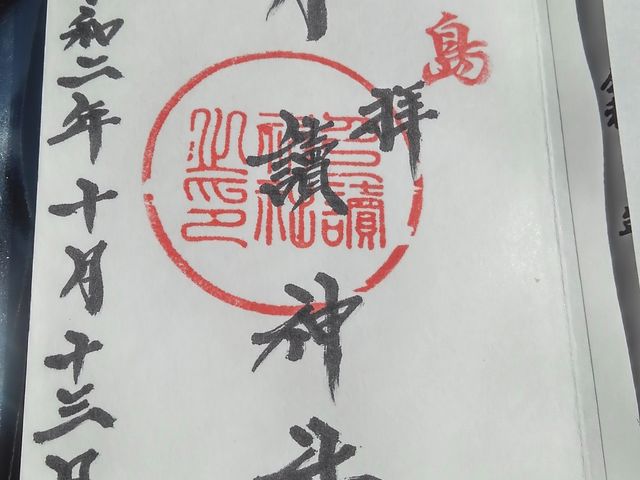 島
拝
月讀神社
月讀神社之印
令和二年十月十三日